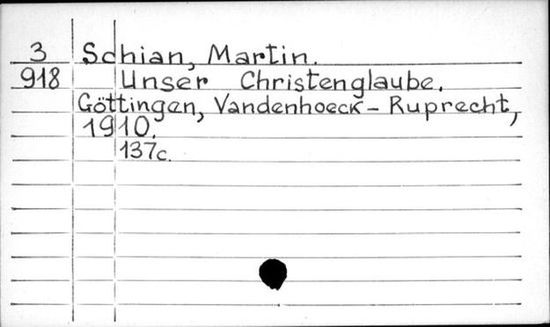 3 Schian, Martin.
918 Unser Christenglaube.
Göttingen, Vandenhoeck - Ruprecht,
1910.
137c.